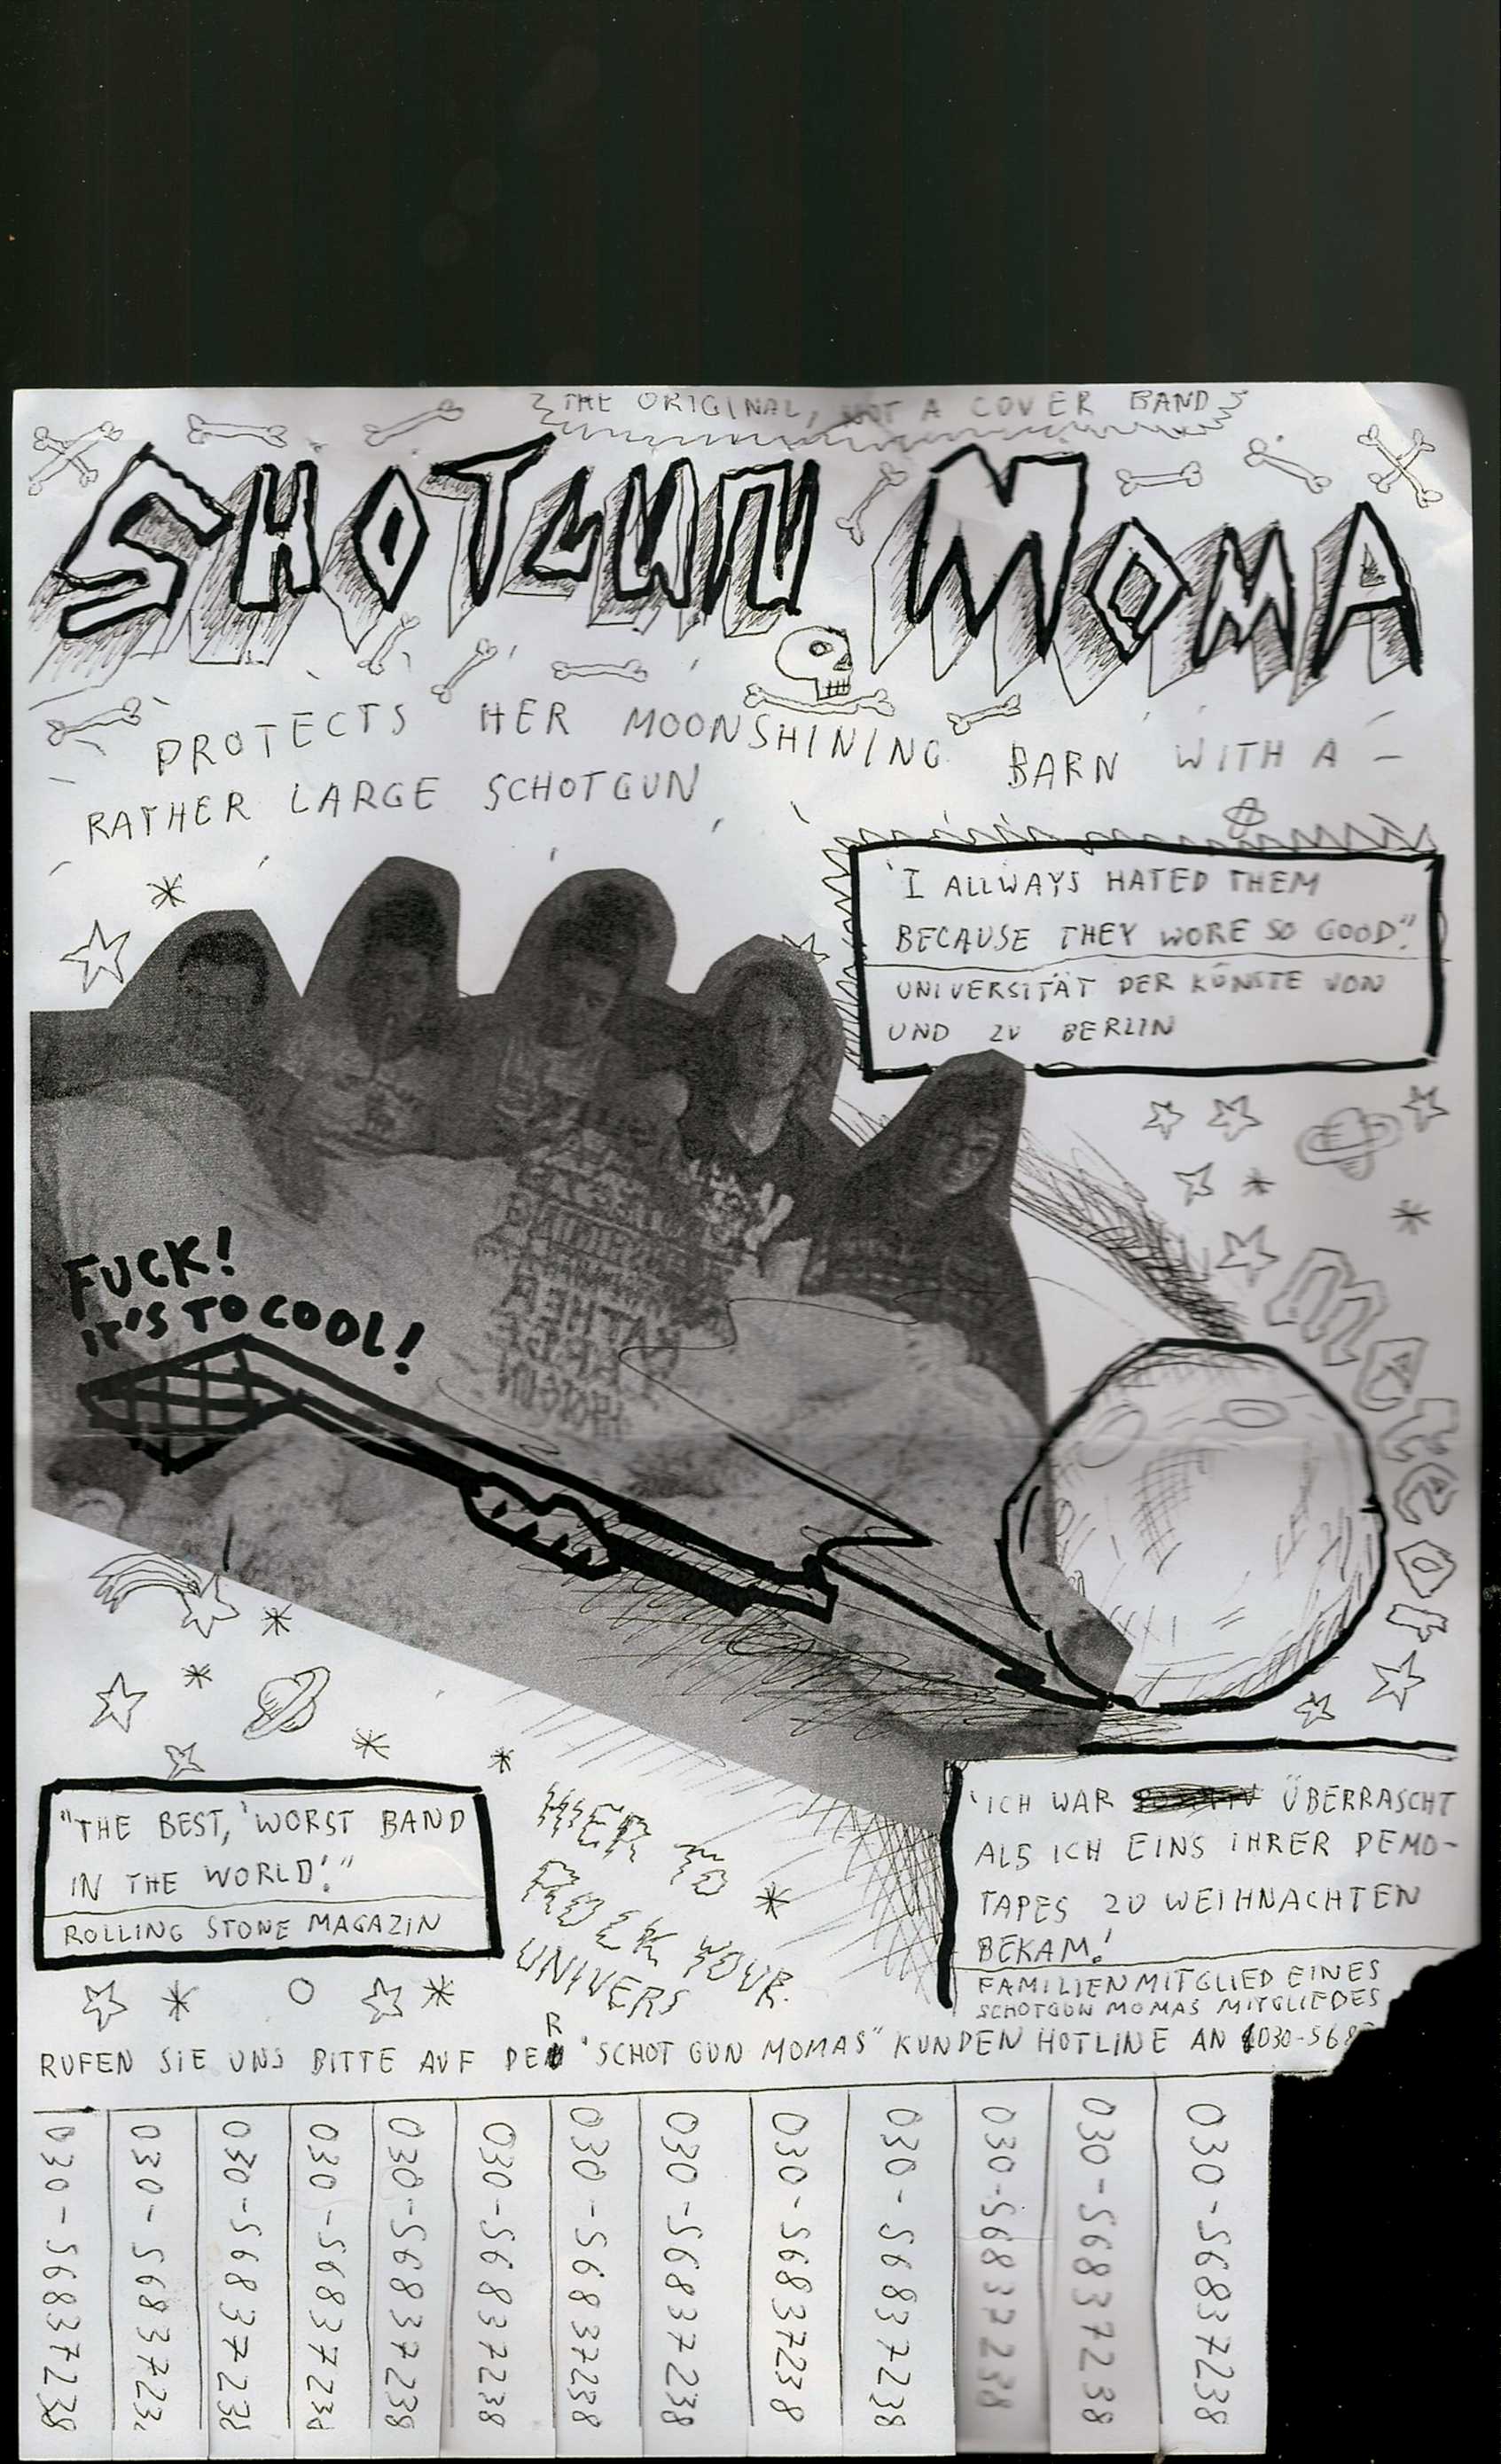 THE ORIGINAL, NOT A COVER BAND
SHOTGUN MOMA
PROTECTS HER MOONSHINING BARN WITH A
RATHER LARGE SCHOTGUN
'I ALLWAYS HATED THEM
BECAUSE THEY WORE SO GOOD".
UNIVERSITÄT DER KÜNSTE VON
UND ZU BERLIN
FUCK!
IT'S TO COOL!
METEOR
"THE BEST, 'WORST BAND
IN THE WORLD'."
ROLLING STONE MAGAZIN
HIER TO
ROCK YOUR
UNIVERS
'ICH WAR ÜBERRASCHT
ALS ICH EINS IHRER DEMO-
TAPES ZU WEIHNACHTEN
BEKAM.'
FAMILIENMITGLIED EINES
SCHOTGUN MOMAS MITGLIEDES
RUFEN SIE UNS BITTE AUF DER 'SCHOT GUN MOMAS" KUNDEN HOTLINE AN 030-568
030-56837238
030-5683723
030-56837238
030-5683723
030-56837238
030-56837238
030-56837238
030-56837238
030-56837238
030-56837238
030-56837238
030-56837238
030-56837238